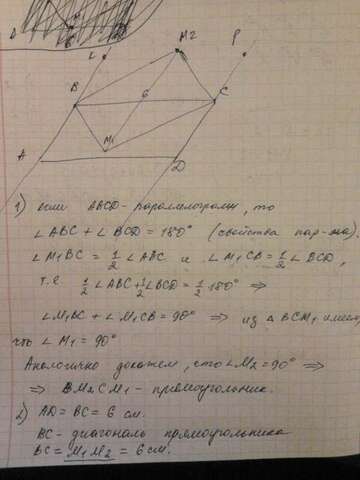 L M2 P
B 6 C
M1
A D
1) если ABCD - параллелограмм, то
∠ABC + ∠BCD = 180° (свойства пар-ма).
∠M1BC = 1/2 ∠ABC и ∠M1CB = 1/2 ∠BCD,
т.е. 1/2 ∠ABC + 1/2 ∠BCD = 1/2 180° ⇒
∠M1BC + ∠M1CB = 90° ⇒ из △BCM1 имеем,
что ∠M1 = 90°
Аналогично докажем, что ∠M2 = 90° ⇒
⇒ BM2CM1 - прямоугольник.
2) AD = BC = 6 см.
BC - диагональ прямоугольника
BC = M1M2 = 6 см.